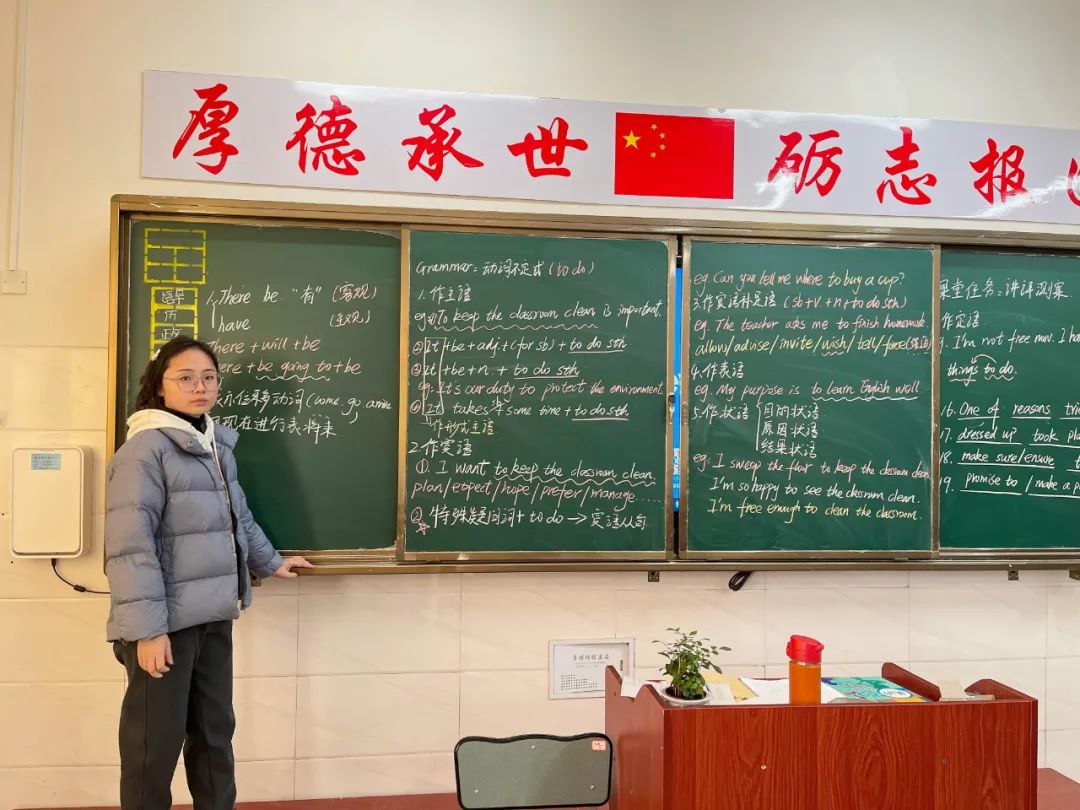 厚德承世 励志报
语
历
政
1. There be "有" (客观)
have (主观)
There + will + be
There + be going to + be
表示位移动词 (come, go, arrive
现在进行表将来
Grammar: 动词不定式 (to do)
1. 作主语
eg: ① To keep the classroom clean is important.
② It + be + adj + (for sb) + to do sth
③ It + be + n. + to do sth
eg: It's our duty to protect the environment
④ It takes sb some time + to do sth
作形式主语
2. 作宾语
①. I want to keep the classroom clean.
plan/expect/hope/prefer/manage......
② 特殊疑问词 + to do → 宾语从句
eg. Can you tell me where to buy a cup?
3. 作宾语补足语 (sb + v. + n + to do sth)
eg. The teacher asks me to finish homework.
allow/advise/invite/wish/tell/force(强迫)
4. 作表语
eg. My purpose is to learn English well.
5. 作状语 目的状语
原因状语
结果状语
eg: I sweep the floor to keep the classroom clean
I'm so happy to see the classroom clean.
I'm free enough to clean the classroom.
课堂任务: 讲评测案.
作定语
I'm not free now. I ha
things to do.
16. One of reasons
17. dressed up took pla
18. make sure/ensure
19. promise to / make a p